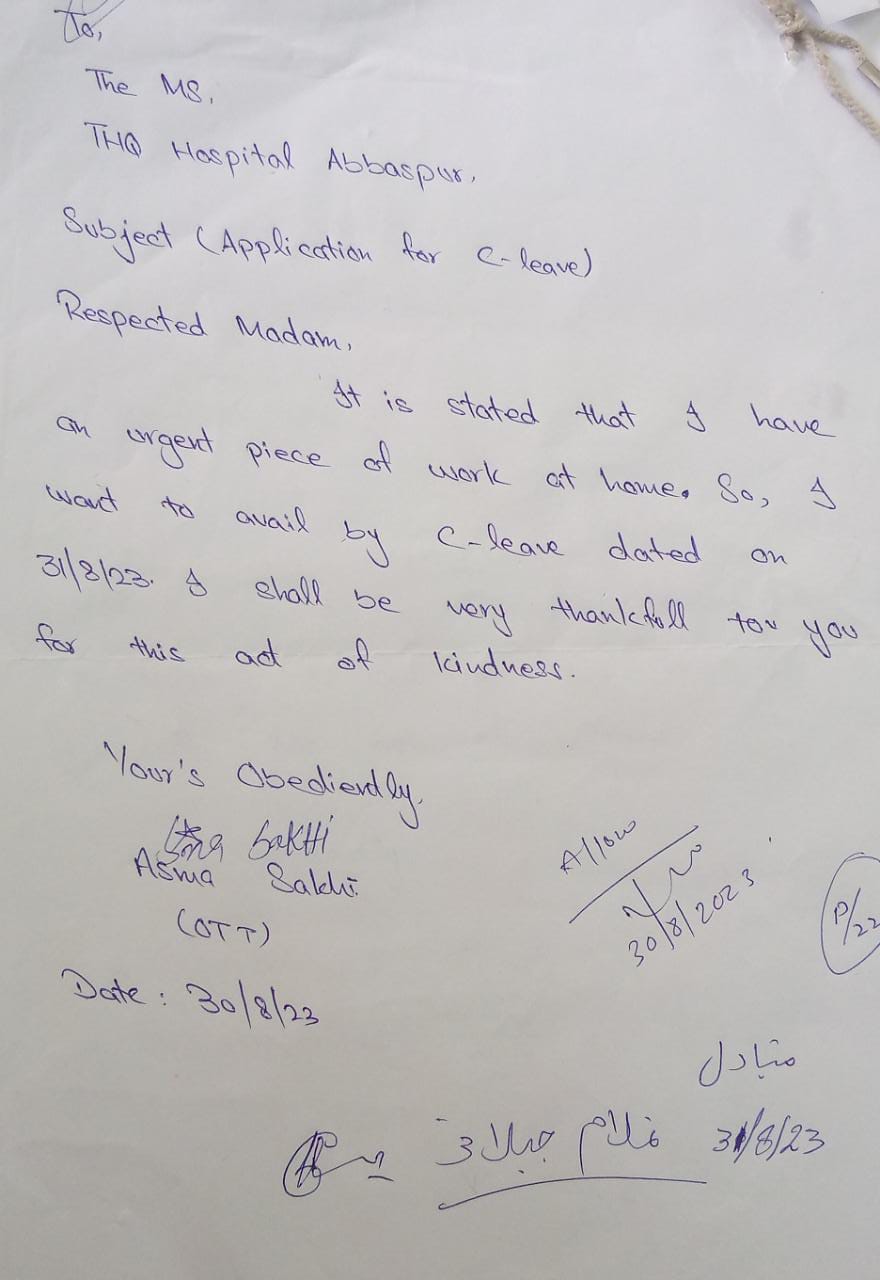 To,
The MS,
THQ Hospital Abbaspur,
Subject (Application for C-leave)
Respected Madam,
It is stated that I have
an urgent piece of work at home. So, I
want to avail by C-leave dated on
31/8/23. I shall be very thankfull tou you
for this act of kindness.
Your's Obediently,
Asma Sakhi
(OTT)
Allow
30/8/2023
P/22
Date : 30/8/23
متبادل
31/8/23 غلام جیلانی